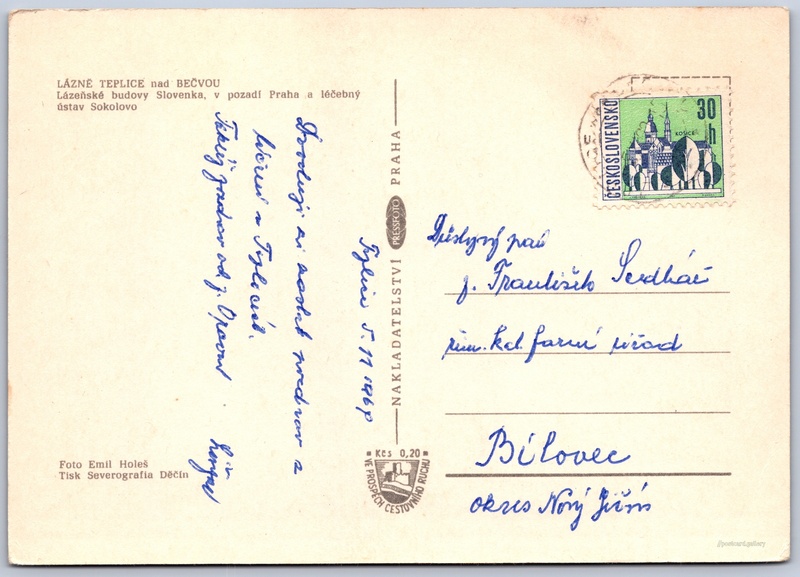 LÁZNĚ TEPLICE nad BEČVOU
Lázeňské budovy Slovenka, v pozadí Praha a léčebný
ústav Sokolovo
Dovoluji si zaslat pozdrav z
léčení v Teplicích.
Také pozdrav od p.
Teplice 5. 11 196
NAKLADATELSTVÍ PRESSFOTO PRAHA
Kčs 0,20
VE PROSPĚCH CESTOVNÍHO RUCHU
Foto Emil Holeš
Tisk Severografia Děčín
ČESKOSLOVENSKO
30 h
KOŠICE
Důstojný pan
p. František
řím. kat. farní úřad
Bílovec
okres Nový Jičín
postcard.gallery